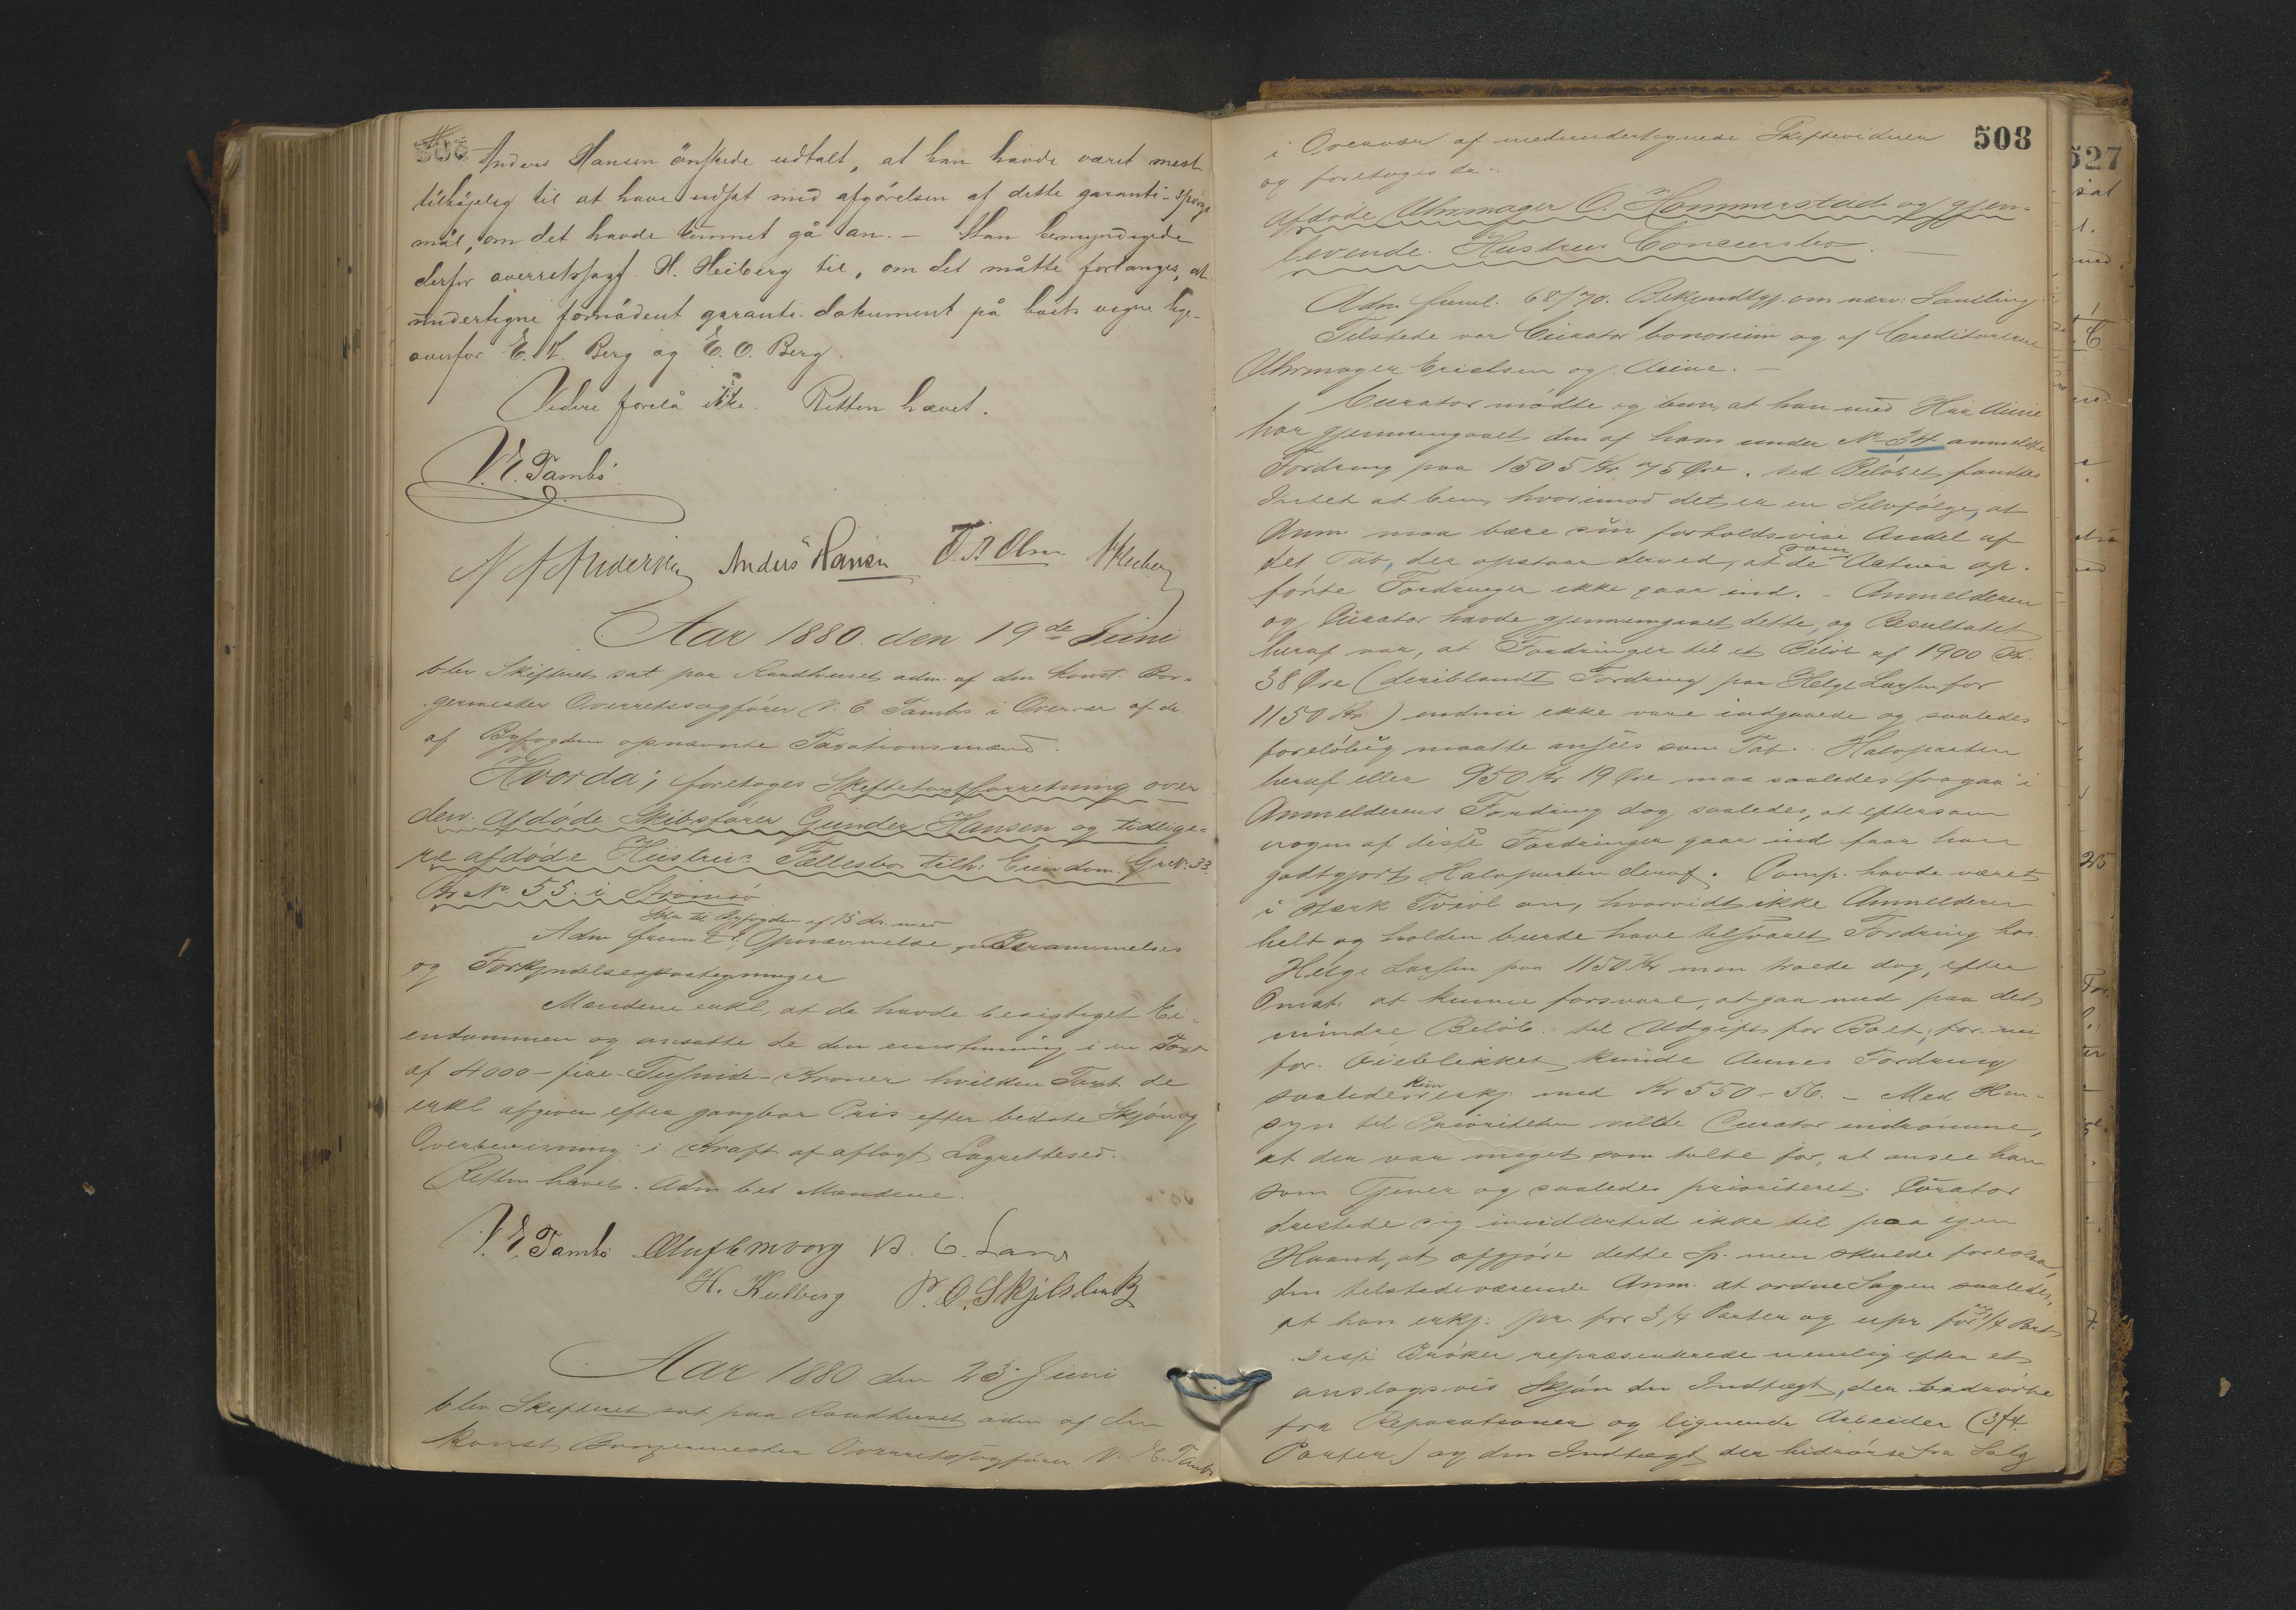 Anders Hansen önskede udtalt, at han havde været mest
tilböjelig til at have udsat med afgörelsen af dette garanti-spörgs-
mål, om det havde kunnet gå an. — Man bemyndigede
derfor overretssagf. H. Heiberg til, om det måtte forlanges, at
undertegne fornödent garanti-dokument på boets vegne lige-
overfor E. K. Berg og E. O. Berg.
Videre forelå ikke. Retten hævet.
V. E. Tambs
N A Andersen Anders Hansen H Heiberg
Aar 1880 den 19de Juni
blev Skifteret sat paa Raadhuset adm. af den konst. Bor-
germester Overretssagfører V. E. Tambs i Overvær af de
af Byfogden opnævnte Taxationsmænd.
Hvorda; foretoges Skiftetaxtforretning over
den afdøde Skibsfører Gunder Hansen og tidlige-
re afdøde Hustrus Fællesbo tilh. Eiendom Gr. No. 33
Br No. 55 i Strömsö
Skr. til Byfogden af 15 ds. med
Adm. freml. Opnævnelse, Berammelses
og Forkyndelsespaategninger
Mændene erkl., at de havde besigtiget Ei-
endommen og ansatte de den enstemmig i en Taxt
af 4000 - fire - Tusinde - Kroner hvilken Taxt de
erkl afgiven efter gangbar Pris efter bedste Skjøn og
Overbevisning i Kraft af aflagt Lagrettesed.
Retten hævet. Adm bet Mændene.
V. E. Tambs
H. Kulberg
Aar 1880 den 23 Juni
blev Skifteret sat paa Raadhuset adm af den
konst Borgermester Overretssagfører V. E. Tambs
508
i Overvær af medundertegnede Skiftevidner
og foretoges da:
Afdøde Uhrmager O. Hammerstads og gjen-
levende Hustrus Concursbo. —
Adm freml. 68/70. Bekjendtgj. om nærv. Samling
Tilstede var Curator bonorum og af Creditorerne
Uhrmager Erichsen og Aune. —
Curator mødte og bem, at han med Hr. Aune
har gjennemgaaet den af ham under No 34 anmeldte
Fordring paa 1505 Kr 75 Øre. Ved Beløbet fandtes
Intet at bem, hvorimod det er en Selvfølge, at
Anm maa bære sin forholdsvise Andel af
det Tab, der opstaar derved, at de som Activa op-
førte Fordringer ikke gaar ind. - Anmelderen
og Curator havde gjennemgaaet dette, og Resultatet
heraf var, at Fordringer til et Beløb af 1900 Kr.
38 Øre (deriblandt Fordring paa Helge Larsen for
1150 Kr) endnu ikke vare indgaaede og saaledes
foreløbig maatte ansees som Tab. Halvparten
heraf eller 950 Kr 19 Øre maa saaledes fragaa i
Anmelderens Fordring dog saaledes, at eftersom
nogen af disse Fordringer gaar ind faar han
godtgjort Halvparten deraf. Comp. havde været
i stærk Tvivl om, hvorvidt ikke Anmelderen
helt og holden burde have tilsvaret Fordring hos
Helge Larsen paa 1150 Kr men troede dog, efter
Omst. at kunne forsvare, at gaa med paa det
mindre Beløb til Udgift for Boet; for nu
for Øieblikket kunde Aunes Fordring
saaledes kun erkj. med Kr 550-56. - Med Hen-
syn til Prioriteten vilde Curator indrømme,
at der var meget som talte for, at ansee ham
som Tjener og saaledes prioriteret. Curator
drestede sig imidlertid ikke til paa egen
Haand, at afgjøre dette Sp. men skulde foreslaa
den tilstedeværende Anm. at ordne Sagen saaledes,
at han erkj. pr. for 3/4 Parter og upr for 1/4 Part
Disse Brøker repræsenterede nemlig efter et
anslagsvis Skjøn den Indtægt, der hidrørte
fra Reparationer og lignende Arbeider (3/4
Parter) og den Indtægt der hidrørte fra Salg
527